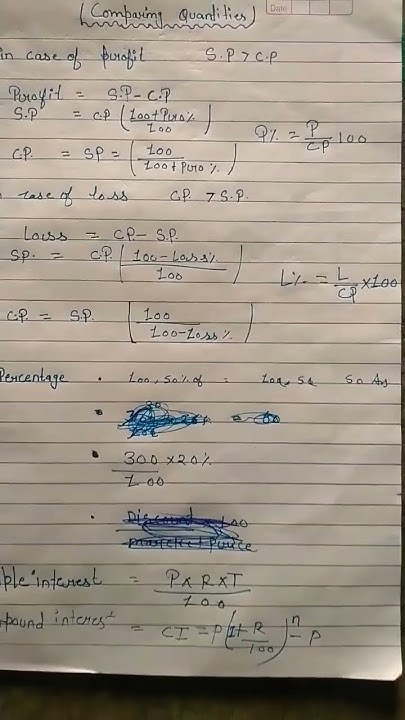 (Comparing Quantities)
Date
in case of profit S.P > C.P
Profit = S.P - C.P
S.P = C.P (100+Pro% / 100)
P% = P/CP 100
C.P. = SP = (100 / 100+Pro%)
case of loss C.P. > S.P.
Loss = C.P - S.P.
SP. = C.P. (100-Loss% / 100)
L% = L/CP × 100
C.P. = S.P. (100 / 100-Loss%)
Percentage • 100, 50% of = 50 Ans
• 300 × 20% / 100
• Discount 100
ple interest = P × R × T / 100
pound interest = CI = P(1+ R/100)^n - P